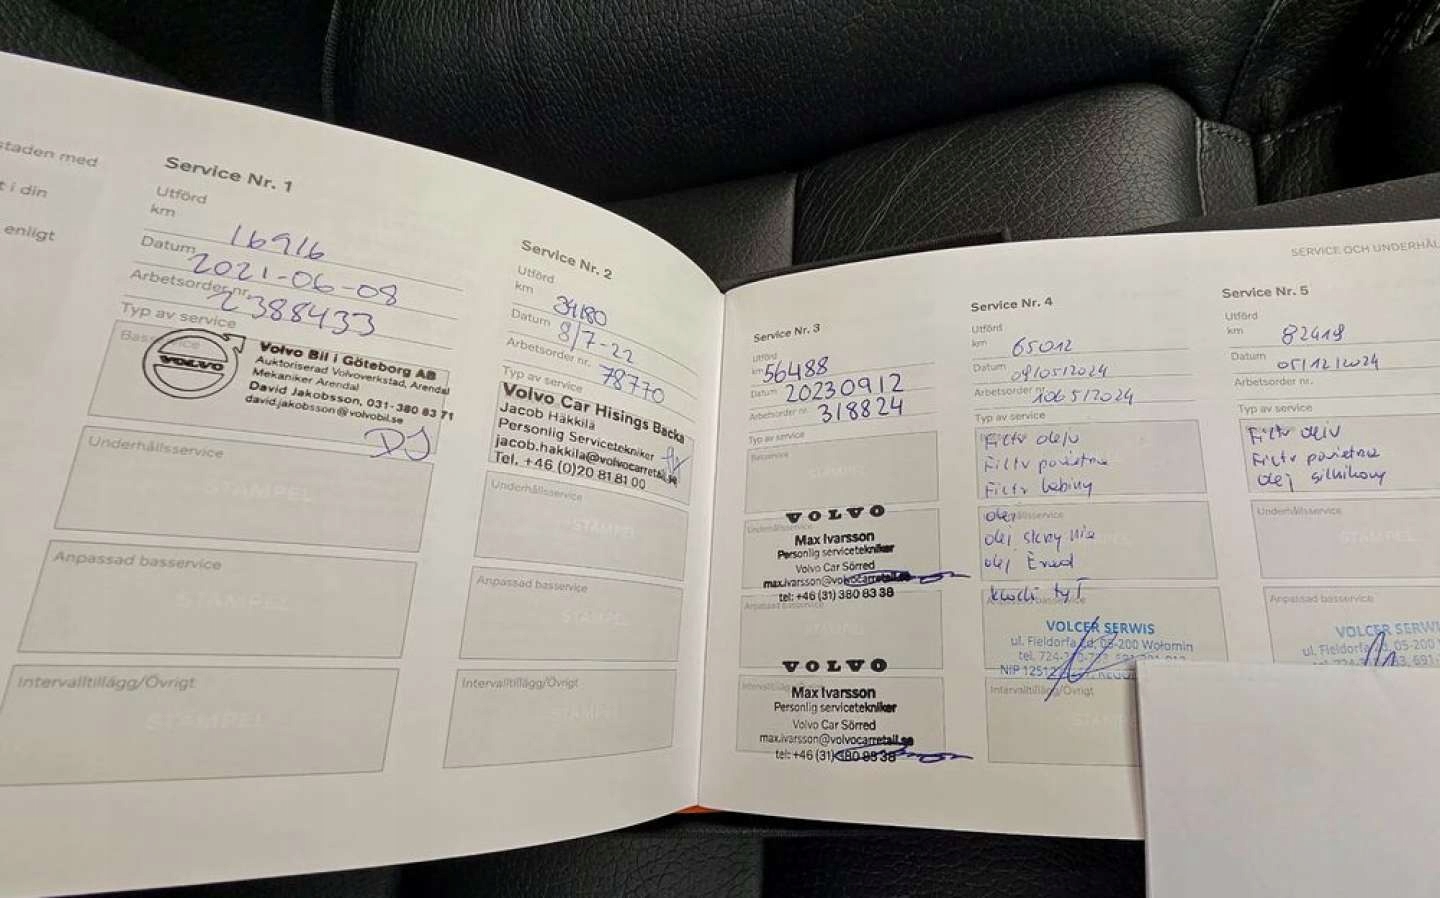 staden med
t i din
enligt
Service Nr. 1
Utförd
km 16916
Datum 2021-06-08
Arbetsorder nr. 2388433
Typ av service
Basservice
VOLVO
Volvo Bil i Göteborg AB
Auktoriserad Volvoverkstad, Arendal
Mekaniker Arendal
David Jakobsson, 031-380 83 71
david.jakobsson@volvobil.se
DJ
Underhållsservice
STAMPEL
Anpassad basservice
STAMPEL
Intervalltillägg/Övrigt
STAMPEL
Service Nr. 2
Utförd
km 34180
Datum 8/7-22
Arbetsorder nr. 78770
Typ av service
Volvo Car Hisings Backa
Jacob Häkkilä
Personlig Servicetekniker
jacob.hakkila@volvocarretail.se
Tel. +46 (0)20 81 81 00
Underhållsservice
STAMPEL
Anpassad basservice
STAMPEL
Intervalltillägg/Övrigt
STAMPEL
Service Nr. 3
Utförd
km 56488
Datum 20230912
Arbetsorder nr. 318824
Typ av service
Basservice
STAMPEL
Underhållsservice
VOLVO
Max Ivarsson
Personlig servicetekniker
Volvo Car Sörred
max.ivarsson@volvocarretail.se
tel: +46 (31) 380 83 38
Anpassad basservice
STAMPEL
VOLVO
Intervalltillägg/Övrigt
Max Ivarsson
Personlig servicetekniker
Volvo Car Sörred
max.ivarsson@volvocarretail.se
tel: +46 (31) 380 83 38
SERVICE OCH UNDERHÅL
Service Nr. 4
Utförd
km 65012
Datum 09/05/2024
Arbetsorder nr. 1065/2024
Typ av service
Filtr oleju
Filtr powietrza
Filtr kabiny
Underhållsservice
olej
olej skrzynia
olej
tył
Anpassad basservice
VOLCER SERWIS
ul. Fieldorfa 2d, 05-200 Wołomin
tel. 724-
NIP 1251
Intervalltillägg/Övrigt
STAMPEL
Service Nr. 5
Utförd
km 82419
Datum 05/12/2024
Arbetsorder nr.
Typ av service
Filtr oleju
Filtr powietrza
olej silnikowy
Underhållsservice
STAMPEL
Anpassad basservice
VOLCER SERWI
ul. Fieldorfa 2d, 05-200